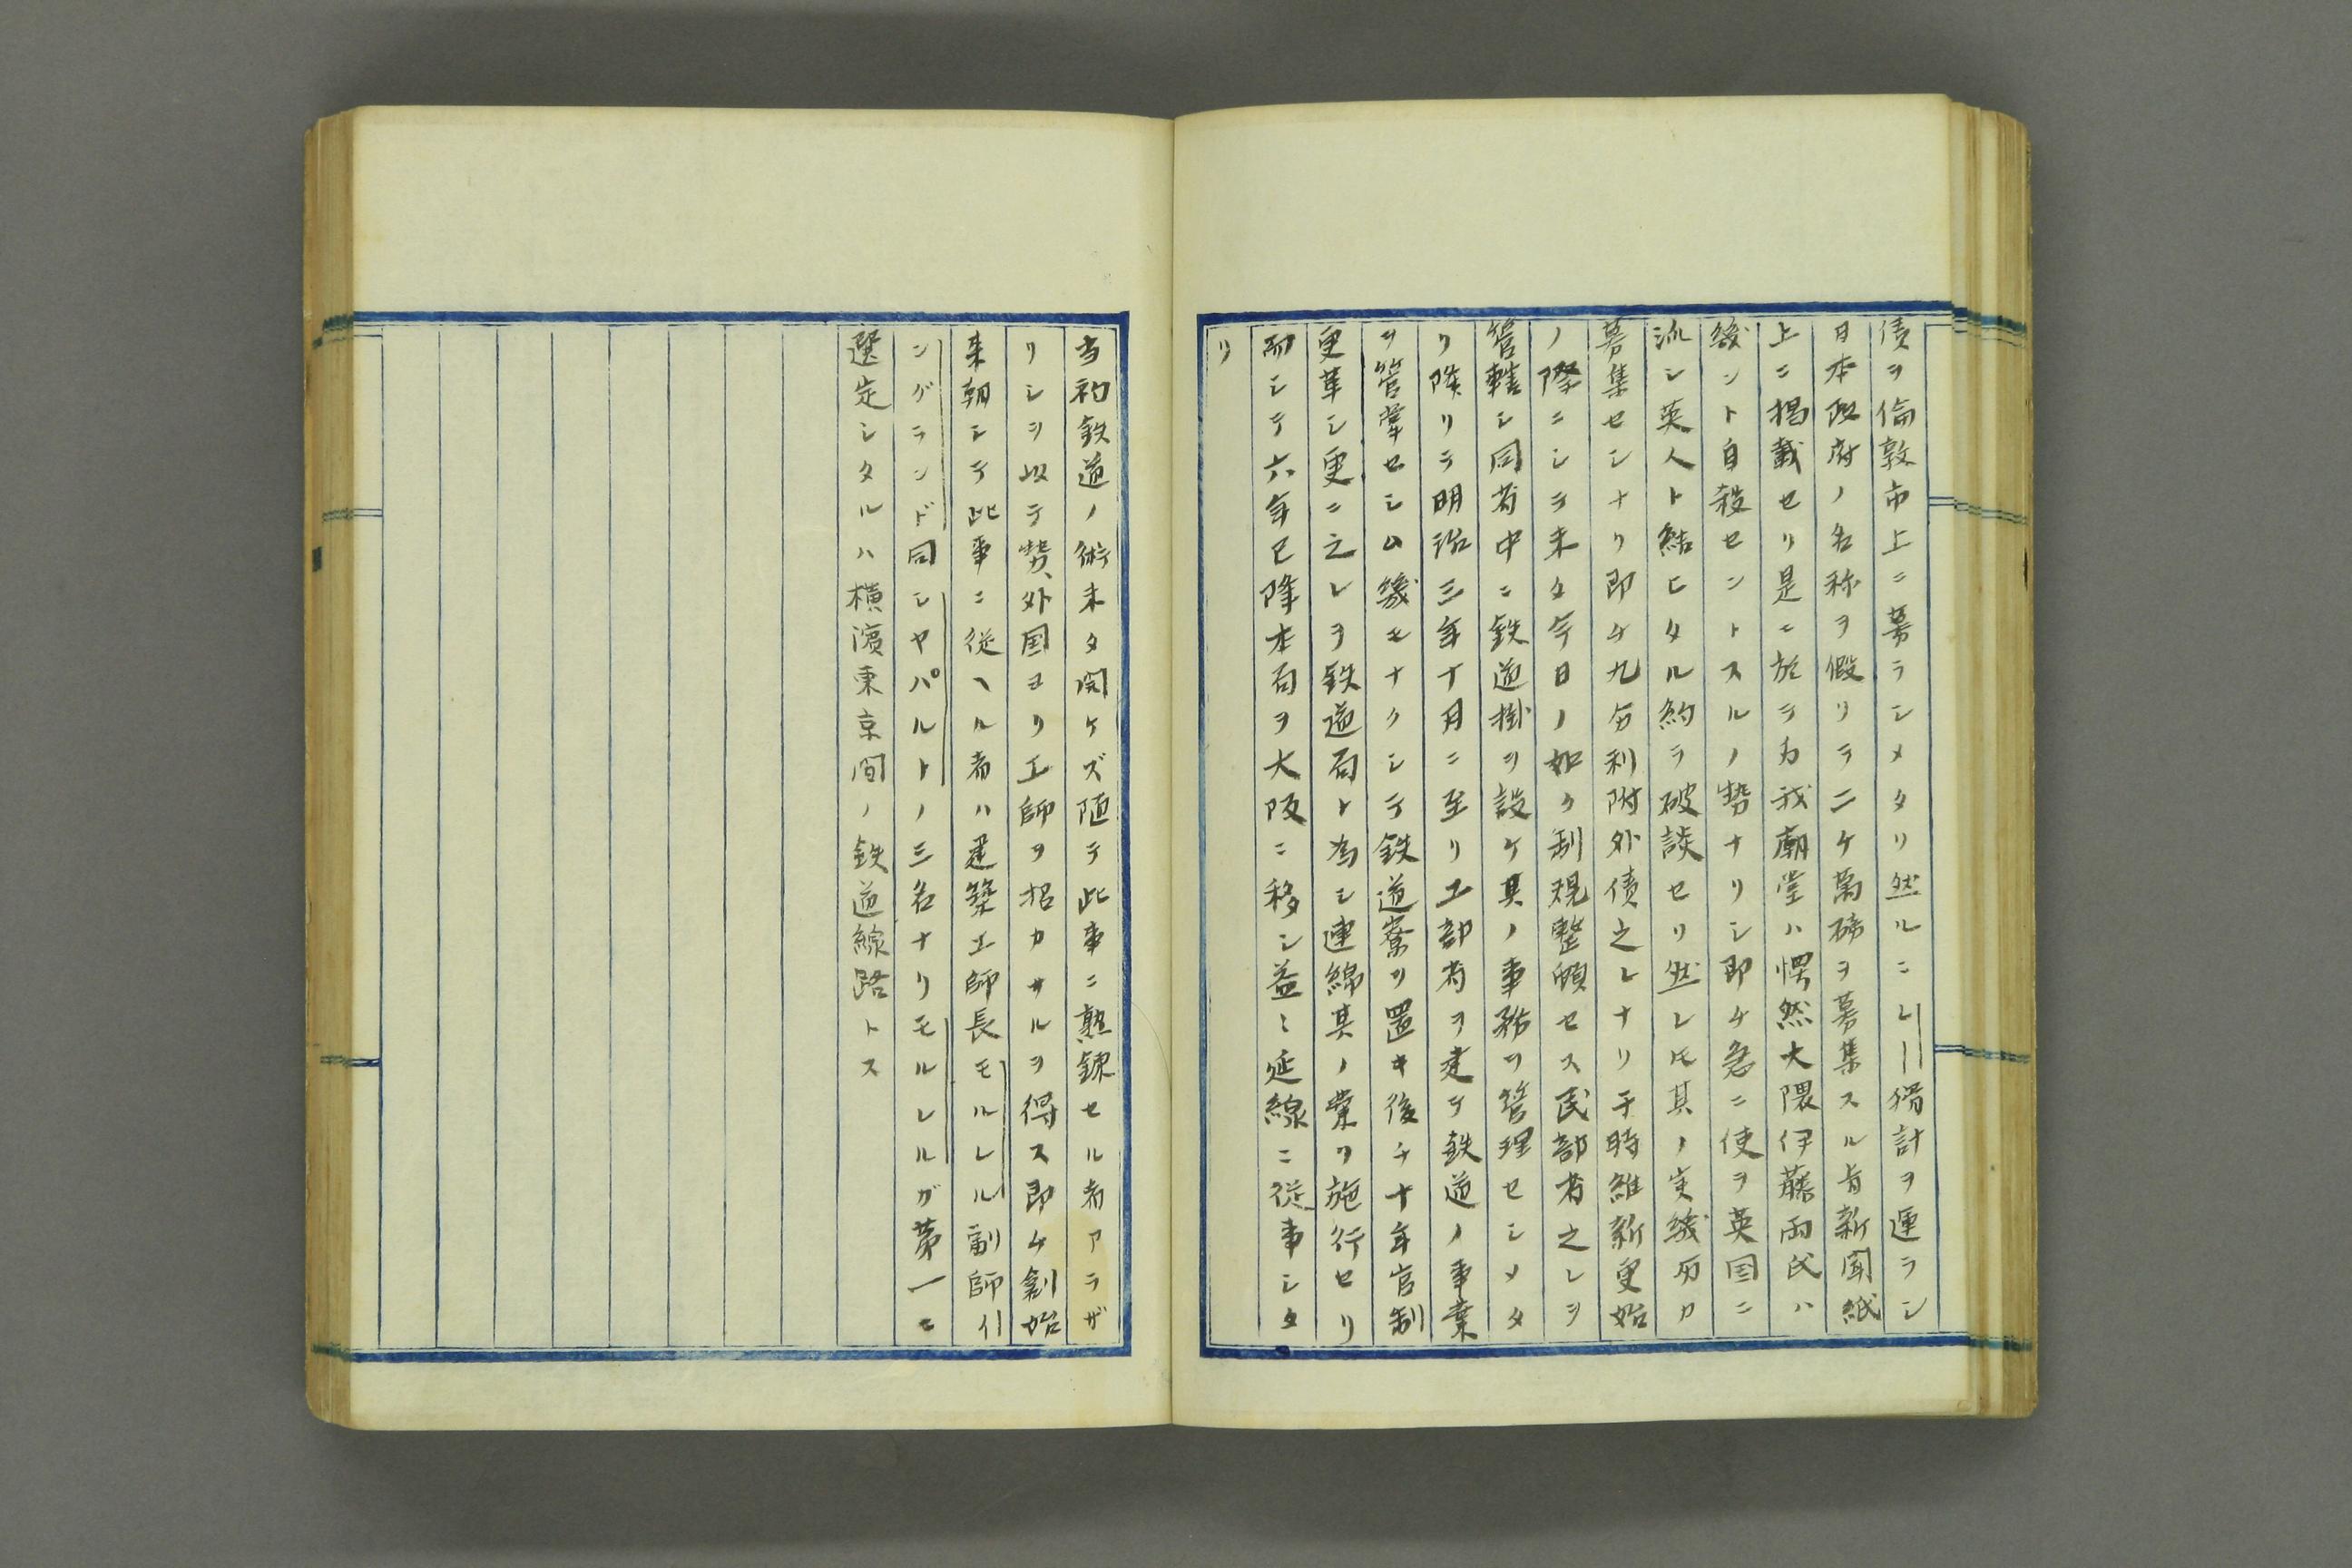 債ヲ倫敦市上ニ募ラシメタリ然ルニレー猾計ヲ運ラシ
日本政府ノ名称ヲ假リテ二ケ萬磅ヲ募集スル旨新聞紙
上ニ掲載セリ是ニ於テ為我廟堂ハ愕然大隈伊藤両氏ハ
ント自殺セントスルノ勢ナリシ即ケ急ニ使ヲ英国ニ
派シ英人ト結ヒタル約ヲ破談セリ然レ𪜈其ノ実幾分カ
募集セシナリ即ケ九分利附外債之レナリ于時維新更始
ノ際ニシテ未タ今日ノ如ク制規整頓セス民部省之レヲ
管轄シ同省中ニ鉄道掛ヲ設ケ其ノ事務ヲ管理セシメタ
リ降リテ明治三年十月ニ至リ工部省ヲ建テ鉄道ノ事業
ヲ管掌セシム幾モナクシテ鉄道寮ヲ置キ後チ十年官制
更革シ更ニ之レヲ鉄道局ト為シ連綿其ノ業ヲ施行セリ
而シテ六年已降本局ヲ大阪ニ移シ益〻延線ニ従事シタ
リ
当初鉄道ノ術未タ開ケズ随テ此事ニ熟錬セル者アラザ
リシヲ以テ勢、外国ヨリ工師ヲ招カサルヲ得ス即ケ創始
来朝シテ此事ニ従ヘル者ハ建築工師長モルレル副師イ
ングランド同シヤパルトノ三名ナリモルレルガ第一ニ
選定シタルハ横濱東京間ノ鉄道線路トス